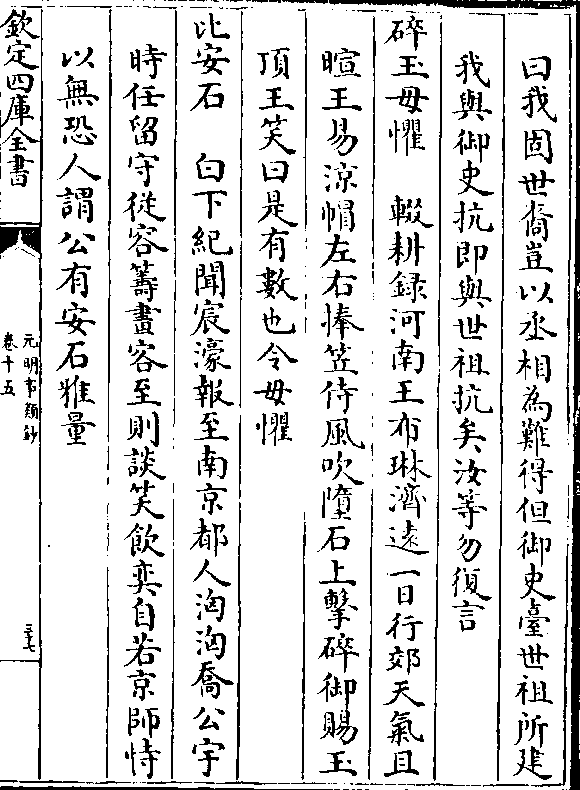 曰我固世胄豈以丞相為難得但御史臺世祖所建
我與御史抗即與世祖抗矣汝等勿復言
碎玉毋懼　輟耕録河南王布琳濟逺一日行郊天氣且
暄王易涼帽左右捧笠侍風吹墮石上擊碎御賜玉
頂王笑曰是有數也令毋懼
比安石　白下紀聞宸濠報至南京都人洶洶喬公宇
時任留守從容籌畫客至則談笑飲奕自若京師恃
以無恐人謂公有安石雅量
欽定四庫全書
元明事類鈔
卷十五
三十七